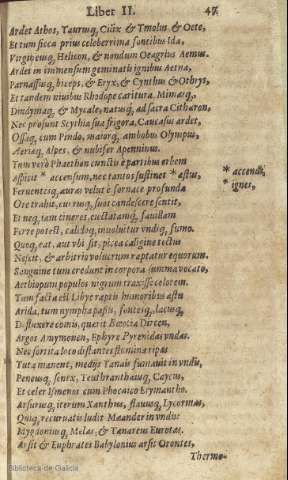 Liber II. 47
Ardet Athos, Taurusq, Cilix & Tmolus & Oete,
Et tum sicca prius celeberrima fontibus Ida,
Virgineusq, Helicon, & nondum Oeagrius Aemus.
Ardet in immensum geminatis ignibus Aetna,
Parnassusq, biceps, & Eryx, & Cynthus & Othrys,
Et tandem niuibus Rhodope caritura, Mimasq,
Dindymaq, & Mycale, natusq, ad sacra Cithæron,
Nec prosunt Scythiæ sua frigora, Caucasus ardet,
Ossaq, cum Pindo, maiorq, ambobus Olympus,
Aeriæq, Alpes, & nubifer Apenninus.
Tum vero Phaethon cunctis è partibus orbem
Aspicit * accensum, nec tantos sustinet * æstus, * accendi,
Feruentesq, auras velut è fornace profunda * ignes,
Ore trahit, currusq, suos candescere sentit,
Et neq, iam cineres, eiectatamq, fauillam
Ferre potest, calidoq, inuoluitur vndiq, fumo.
Quoq, eat, aut vbi sit, picea caligine tectus
Nescit, & arbitrio volucrum raptatur equorum.
Sanguine tum credunt in corpora summa vocato,
Aethiopum populos nigrum traxisse colorem.
Tum facta est Libye raptis humoribus æstu
Arida, tum nymphæ passis, fontesq, lacusq,
Defleuere comis, quærit Bœotia Dircen,
Argos Amymonen, Ephyre Pyrenidas vndas.
Nec sortita loco distantes flumina ripas
Tuta manent, medijs Tanais fumauit in vndis,
Peneusq, senex, Teuthranthæusq, Caycus,
Et celer Ismenos cum Phocaico Erymantho.
Arsurusq, iterum Xanthus, flauusq, Lycormas,
Quiq, recuruatis ludit Mæander in vndis:
Mygdoniusq, Melas, & Tænareus Eurotas.
Arsit & Euphrates Babylonius arsit Orontes,
Thermo-
Biblioteca de Galicia